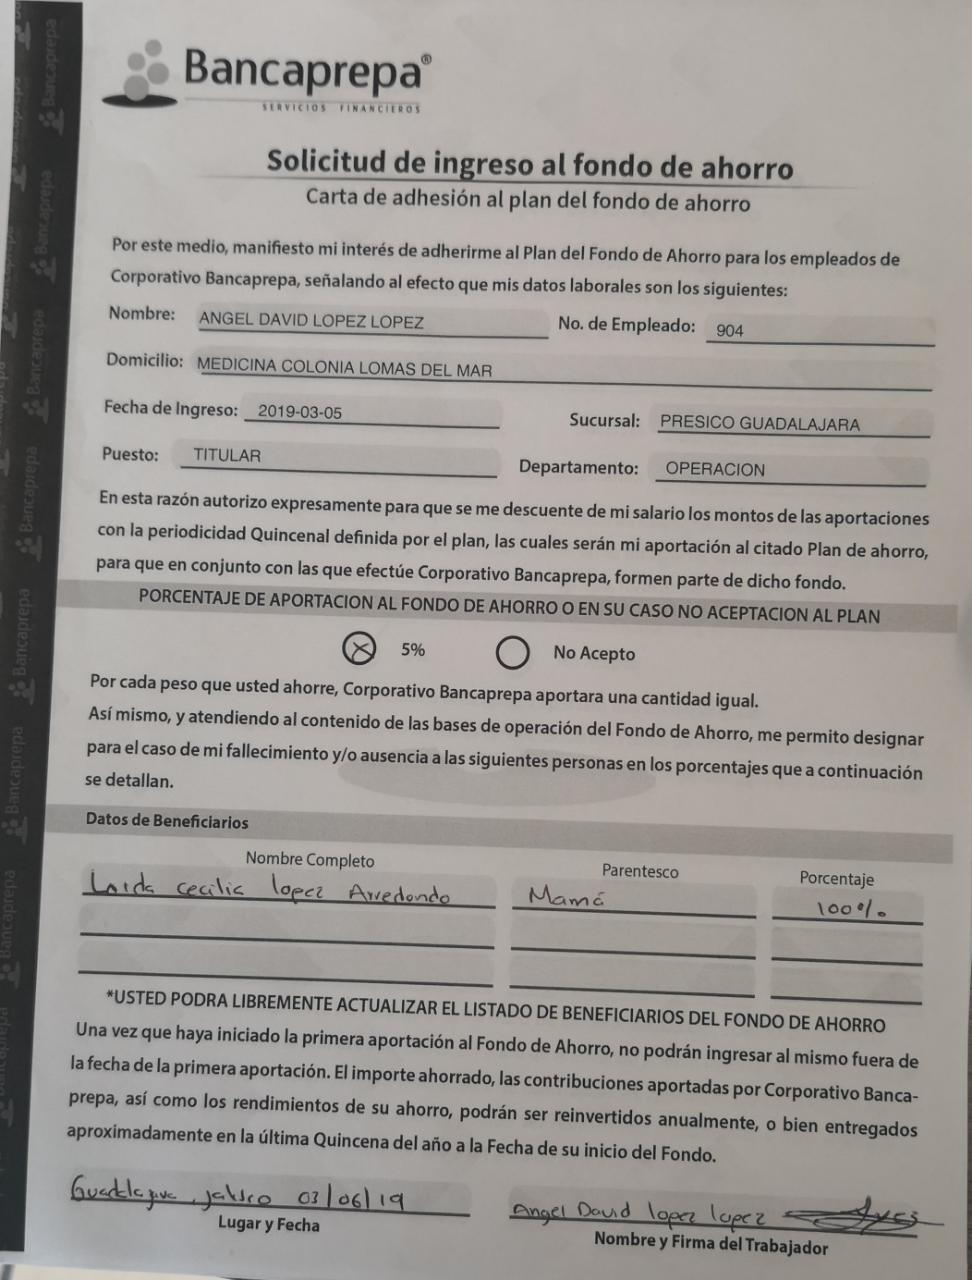 Bancaprepa®
SERVICIOS FINANCIEROS
Solicitud de ingreso al fondo de ahorro
Carta de adhesión al plan del fondo de ahorro
Por este medio, manifiesto mi interés de adherirme al Plan del Fondo de Ahorro para los empleados de
Corporativo Bancaprepa, señalando al efecto que mis datos laborales son los siguientes:
Nombre: ANGEL DAVID LOPEZ LOPEZ No. de Empleado: 904
Domicilio: MEDICINA COLONIA LOMAS DEL MAR
Fecha de Ingreso: 2019-03-05 Sucursal: PRESICO GUADALAJARA
Puesto: TITULAR Departamento: OPERACION
En esta razón autorizo expresamente para que se me descuente de mi salario los montos de las aportaciones
con la periodicidad Quincenal definida por el plan, las cuales serán mi aportación al citado Plan de ahorro,
para que en conjunto con las que efectúe Corporativo Bancaprepa, formen parte de dicho fondo.
PORCENTAJE DE APORTACION AL FONDO DE AHORRO O EN SU CASO NO ACEPTACION AL PLAN
5% No Acepto
Por cada peso que usted ahorre, Corporativo Bancaprepa aportara una cantidad igual.
Así mismo, y atendiendo al contenido de las bases de operación del Fondo de Ahorro, me permito designar
para el caso de mi fallecimiento y/o ausencia a las siguientes personas en los porcentajes que a continuación
se detallan.
Datos de Beneficiarios
Nombre Completo Parentesco Porcentaje
cecilia lopez Arredondo Mamá 100%
*USTED PODRA LIBREMENTE ACTUALIZAR EL LISTADO DE BENEFICIARIOS DEL FONDO DE AHORRO
Una vez que haya iniciado la primera aportación al Fondo de Ahorro, no podrán ingresar al mismo fuera de
la fecha de la primera aportación. El importe ahorrado, las contribuciones aportadas por Corporativo Banca-
prepa, así como los rendimientos de su ahorro, podrán ser reinvertidos anualmente, o bien entregados
aproximadamente en la última Quincena del año a la Fecha de su inicio del Fondo.
jalisco 03/06/19 Angel David lopez lopez
Lugar y Fecha Nombre y Firma del Trabajador